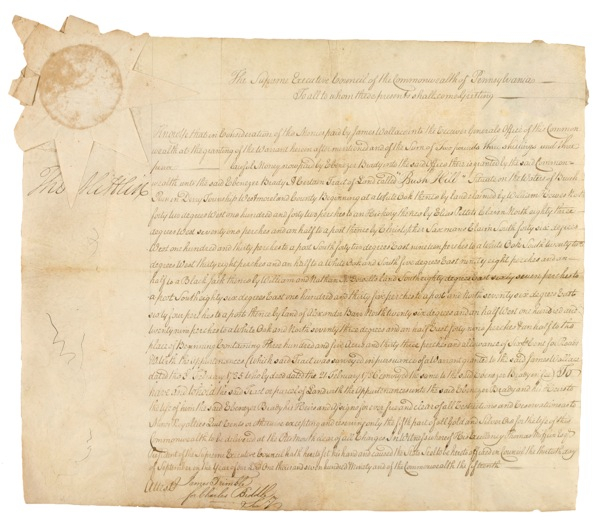 The Supreme Executive Council of the Commonwealth of Pennsylvania
To all to whom these presents shall come Greeting
Know Ye that in Consideration of the Monies paid by James Wallace into the Receiver Generals Office of this Common
wealth at the granting of the Warrant herein after mentioned and of the Sum of Two pounds three shillings and three
pence lawful Money now paid by Ebenezer Brady into the said Office there is granted by the said Common
wealth unto the said Ebenezer Brady A Certain Tract of Land Called "Bush Hill" Situate on the Waters of Brush
Run in Derry Township Westmoreland County Beginning at a White Oak thence by land claimed by William North
forty two degrees West one hundred and forty two perches to an Hickory thence by North eighty three
degrees West seventy one perches and an half to a post thence by Christopher South forty six degrees
West one hundred and thirty perches to a post South forty two degrees East nineteen perches to a White Oak South twenty two
degrees West thirty eight perches and an half to a White Oak and South five degrees East ninety eight perches and an
half to a Black Jack thence by William and Nathan land South eighty degrees East sixty seven perches to
a post South eighty six degrees East one hundred and thirty four perches to a post and North seventy six degrees East
sixty four perches to a post thence by land of Alexander Barr North twenty six degrees and an half West one hundred and
twenty nine perches to a White Oak and North seventy three degrees and an half East forty nine perches and an half to the
place of Beginning Containing three hundred and five Acres and thirty three perches and allowance of Six P Cent for Roads
&c With the appurtenances (Which said Tract was surveyed in pursuance of a Warrant granted to the said James Wallace
dated the February 1785 who by deed dated the 21 February 1786 conveyed the same to the said Ebenezer Brady in fee) To
have and to hold the said Tract or parcel of Land with the appurtenances unto the said Ebenezer Brady and his Heirs to
the use of him the said Ebenezer Brady his Heirs and Assigns for ever free and clear of all Restrictions and Reservations as to
Mines Royalties Quit Rents or otherwise excepting and reserving only the fifth part of all Gold and Silver Ore for the use of this
Commonwealth to be delivered at the Pits Mouth clear of all Charges In Witness whereof His Excellency Thomas Mifflin Esqr
President of the Supreme Executive Council hath hereto set his hand and caused the State Seal to be hereto affixed in Council the thirtieth day
of September in the Year of our Lord One thousand seven hundred and ninety and of the Commonwealth the fifteenth
Tho Mifflin
Attest
James Trimble
for Charles Biddle
Secy